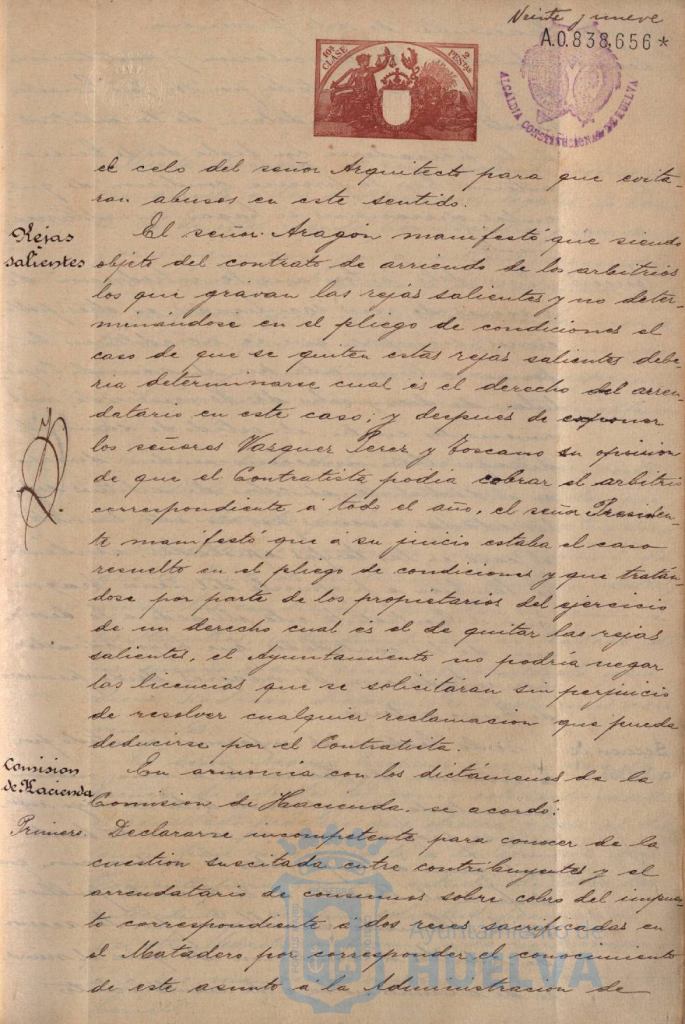 Veinte y nueve
A.0.838,656*
10ª CLASE
2 PESETAS
ALCALDIA CONSTITUCIONAL DE HUELVA
el celo del señor Arquitecto para que evita-
ran abusos en este sentido.
Rejas salientes
El señor Aragón manifestó que siendo
objeto del contrato de arriendo de los arbitrios
los que gravan las rejas salientes y no deter-
minándose en el pliego de condiciones el
caso de que se quiten estas rejas salientes debe-
ria determinarse cual es el derecho del arren-
datario en este caso; y después de exponer
los señores Vazquez Perez y Toscano su opinion
de que el Contratista podia cobrar el arbitrio
correspondiente á todo el año, el señor Presiden-
te manifestó que á su juicio estaba el caso
resuelto en el pliego de condiciones y que tratán-
dose por parte de los propietarios del ejercicio
de un derecho cual es el de quitar las rejas
salientes, el Ayuntamiento no podría negar
las licencias que se solicitaran sin perjuicio
de resolver cualquier reclamacion que pueda
deducirse por el Contratista.
Comision de Hacienda
En armonia con los dictámenes de la
Comision de Hacienda se acordó:
Primero. Declararse incompetente para conocer de la
cuestion suscitada entre contribuyentes y el
arrendatario de consumos sobre cobro del impues-
to correspondiente á dos reses sacrificadas en
el Matadero por corresponder el conocimiento
de este asunto á la Administracion de
Ayuntamiento de
HUELVA